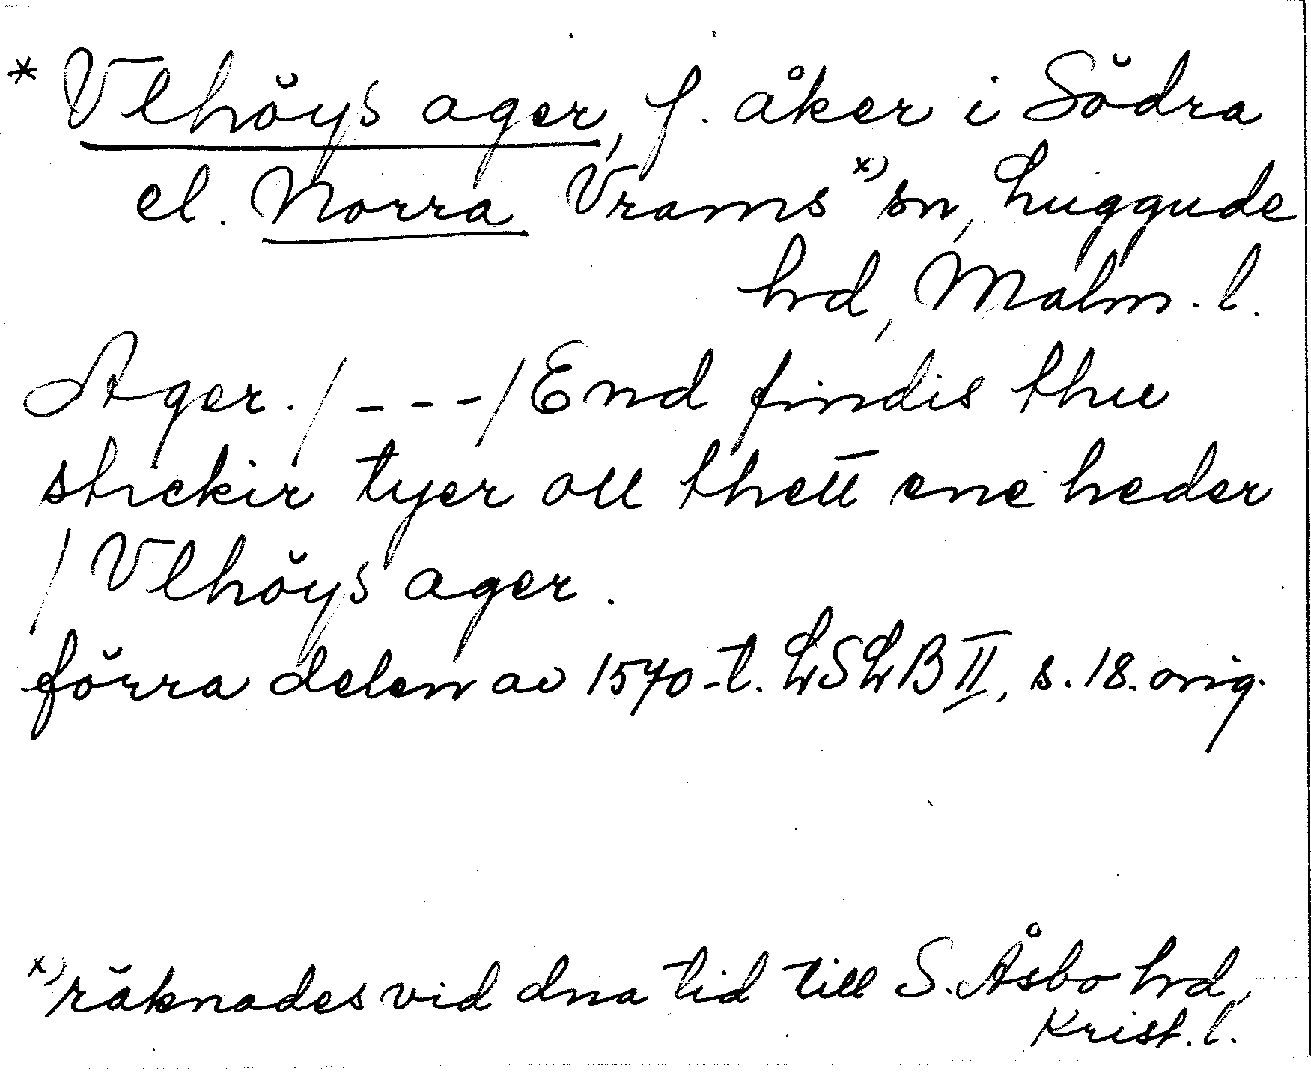 * Vlhöys ager, f. åker i Södra
el. Norra Vrams x) sn, Luggude
hd, Malm. l.
Ager. / - - - / End findis thue
stickir tyer oll thett ene heder
/ Vlhöys ager.
förra delen av 1570-t. LSLB II, s. 18. orig.
x) räknades vid dna tid till S. Åsbo hd,
Krist. l.